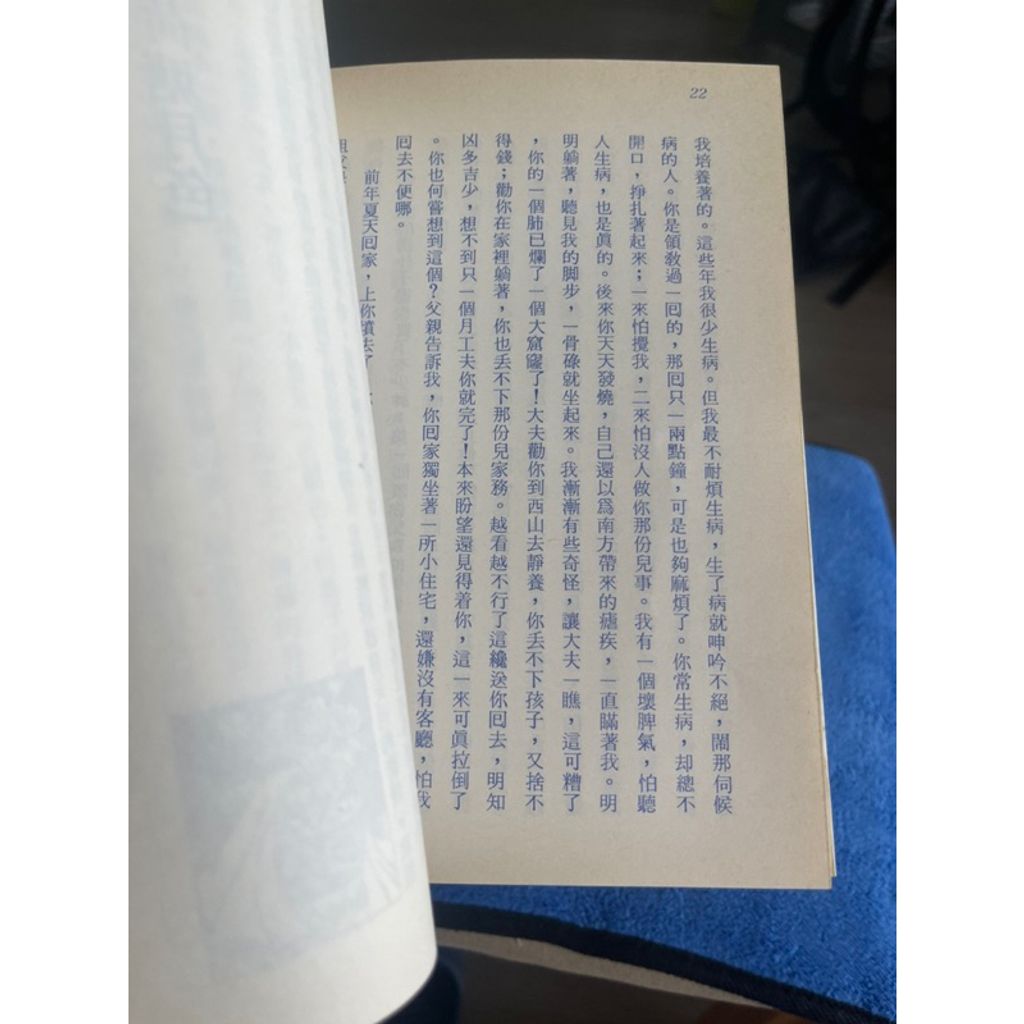 22
我培養著的。這些年我很少生病。但我最不耐煩生病，生了病就呻吟不絕，鬧那伺候
病的人。你是領教過一回的，那回只一兩點鐘，可是也夠麻煩了。你常生病，却總不
開口，掙扎著起來；一來怕攪我，二來怕沒人做你那份兒事。我有一個壞脾氣，怕聽
人生病，也是眞的。後來你天天發燒，自己還以爲南方帶來的瘧疾，一直瞞著我。明
明躺著，聽見我的脚步，一骨碌就坐起來。我漸漸有些奇怪，讓大夫一瞧，這可糟了
，你的一個肺已爛了一個大窟窿了！大夫勸你到西山去靜養，你丢不下孩子，又捨不
得錢；勸你在家裡躺著，你也丢不下那份兒家務。越看越不行了這纔送你回去，明知
凶多吉少，想不到只一個月工夫你就完了！本來盼望還見得着你，這一來可眞拉倒了
。你也何嘗想到這個？父親告訴我，你回家獨坐著一所小住宅，還嫌沒有客廳，怕我
回去不便哪。
前年夏天回家，上你墳去了